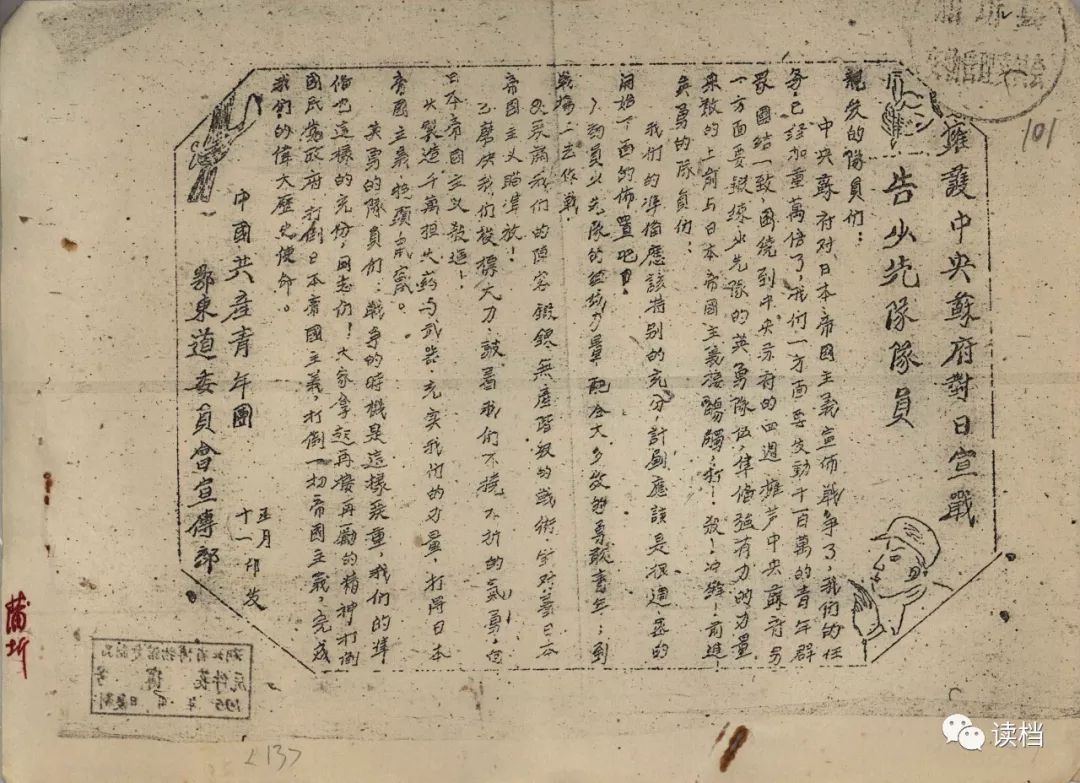 擁護中央蘇府對日宣戰
告少先隊隊員
親爱的隊員們：
中央蘇府对日本帝國主義宣佈戰争了，我們的任
务，已經加重萬倍了，我们一方面要发動千百萬的青年群
眾團結一致，圍繞到中央苏府的四週擁护中央蘇府另
一方面要鍛練少先隊的英勇隊伍，準偹強有力的力量
來敢的上前与日本帝國主義接觸，打！殺！冲鋒！前進
英勇的隊員们：
我們的準偹應該特别的充分，計劃應該是很週盃的
開始下面的佈置吧！
1、動員少先隊的力量配合大多数勞苦青年；到
戰塲上去作戰。
們的陣容鍛鍊無産階級的战術，針对着日本
帝國主义瞄準放！
乙、磨快我们梭標大刀，鼓着我们不撓不折的氣勇，向
日本帝國主义殺進！
製造千萬担火药与武器，充实我们的力量，打得日本
帝國主義，
英勇的隊員们：戰争的時機是這樣我們的準
偹也這樣的充份，同志们！大家拿起再接再厲的精神打倒
國民党政府，打倒日本帝國主義，打倒一切帝國主義，完成
我們的偉大歷史使命。
中國共産青年團
鄂東道委員會宣傳部
正月
十一印发
101
蒲圻
<13>
读档